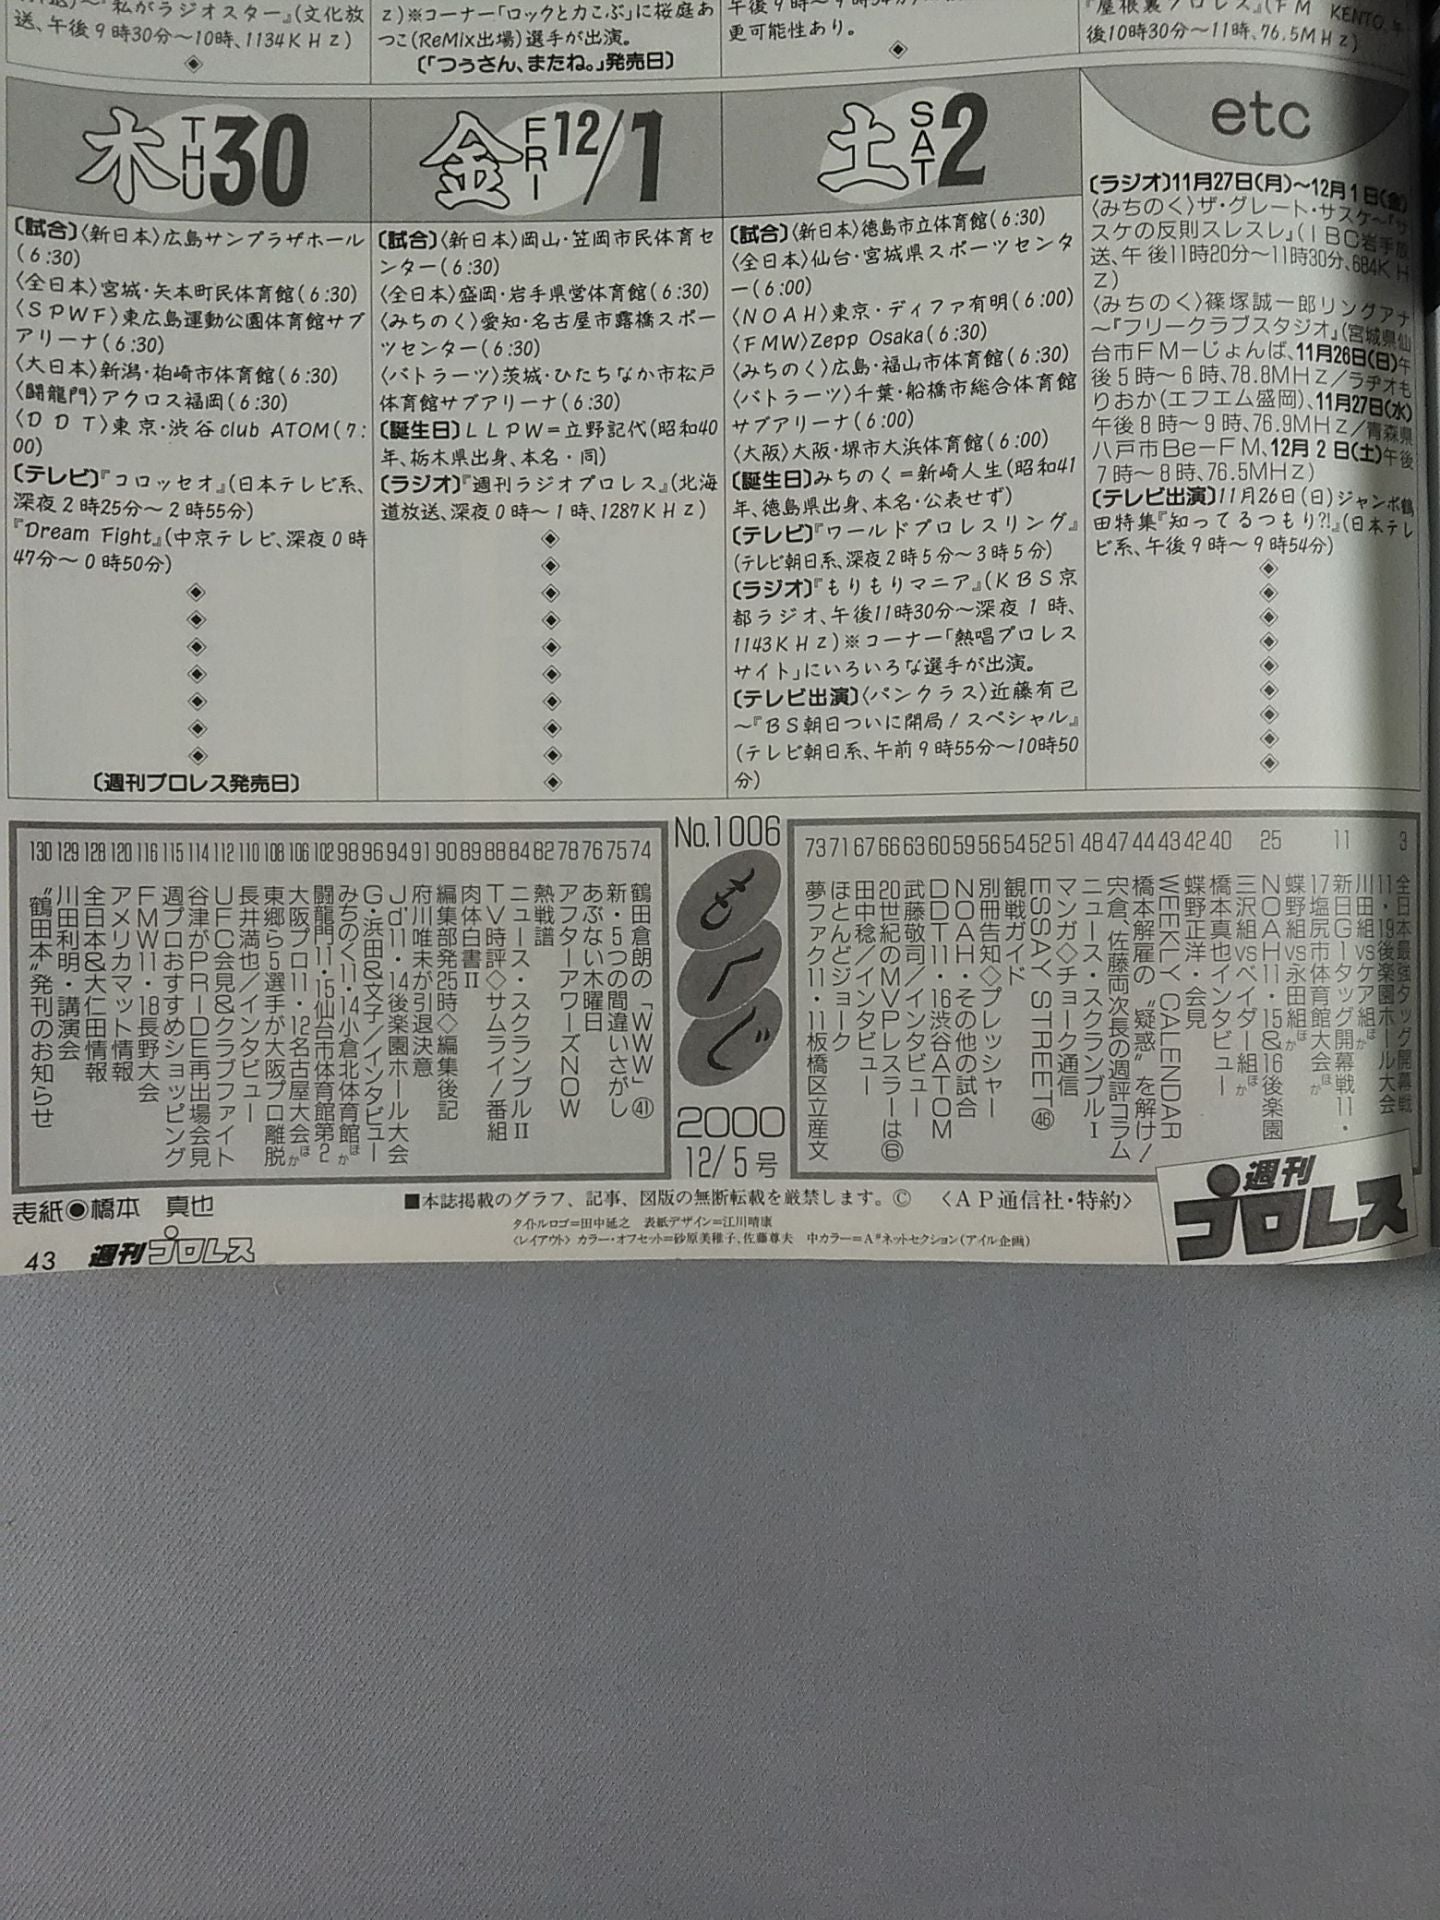 『私がラジオスター』(文化放
送、午後9時30分〜10時、1134KHz)
◈
z)※コーナー「ロックと力こぶ」に桜庭あ
つこ(ReMix出場)選手が出演。
〔「つぅさん、またね。」発売日〕
更可能性あり。
◈
『屋根裏プロレス』(FM KENTO、午
後10時30分〜11時、76.5MHz)
木 THU 30
〔試合〕〈新日本〉広島サンプラザホール
(6:30)
〈全日本〉宮城・矢本町民体育館(6:30)
〈SPWF〉東広島運動公園体育館サブ
アリーナ(6:30)
〈大日本〉新潟・柏崎市体育館(6:30)
〈闘龍門〉アクロス福岡(6:30)
〈DDT〉東京・渋谷club ATOM(7:
00)
〔テレビ〕『コロッセオ』(日本テレビ系、
深夜2時25分〜2時55分)
『Dream Fight』(中京テレビ、深夜0時
47分〜0時50分)
◈
◈
◈
◈
◈
◈
◈
〔週刊プロレス発売日〕
金 FRI 12/1
〔試合〕〈新日本〉岡山・笠岡市民体育セ
ンター(6:30)
〈全日本〉盛岡・岩手県営体育館(6:30)
〈みちのく〉愛知・名古屋市露橋スポー
ツセンター(6:30)
〈バトラーツ〉茨城・ひたちなか市松戸
体育館サブアリーナ(6:30)
〔誕生日〕LLPW=立野記代(昭和40
年、栃木県出身、本名・同)
〔ラジオ〕『週刊ラジオプロレス』(北海
道放送、深夜0時〜1時、1287KHz)
◈
◈
◈
◈
◈
◈
◈
◈
◈
◈
土 SAT 2
〔試合〕〈新日本〉徳島市立体育館(6:30)
〈全日本〉仙台・宮城県スポーツセンタ
ー(6:00)
〈NOAH〉東京・ディファ有明(6:00)
〈FMW〉Zepp Osaka(6:30)
〈みちのく〉広島・福山市体育館(6:30)
〈バトラーツ〉千葉・船橋市総合体育館
サブアリーナ(6:00)
〈大阪〉大阪・堺市大浜体育館(6:00)
〔誕生日〕みちのく=新崎人生(昭和41
年、徳島県出身、本名・公表せず)
〔テレビ〕『ワールドプロレスリング』
(テレビ朝日系、深夜2時5分〜3時5分)
〔ラジオ〕『もりもりマニア』(KBS京
都ラジオ、午後11時30分〜深夜1時、
1143KHz)※コーナー「熱唱プロレス
サイト」にいろいろな選手が出演。
〔テレビ出演〕〈パンクラス〉近藤有己
〜『BS朝日ついに開局!スペシャル』
(テレビ朝日系、午前9時55分〜10時50
分)
etc
〔ラジオ〕11月27日(月)〜12月1日(金)
〈みちのく〉ザ・グレート・サスケ〜『サ
スケの反則スレスレ』(IBC岩手放
送、午後11時20分〜11時30分、684KH
z)
〈みちのく〉篠塚誠一郎リングアナ
〜『フリークラブスタジオ』(宮城県仙
台市FMーじょんぱ、11月26日(日)午
後5時〜6時、78.8MHz/ラヂオも
りおか(エフエム盛岡)、11月27日(水)
午後8時〜9時、76.9MHz/青森県
八戸市Be-FM、12月2日(土)午後
7時〜8時、76.5MHz)
〔テレビ出演〕11月26日(日)ジャンボ鶴
田特集『知ってるつもり?!』(日本テレ
ビ系、午後9時〜9時54分)
◈
◈
◈
◈
◈
◈
◈
◈
◈
3 全日本最強タッグ開幕戦
11・19後楽園ホール大会
川田組vsケア組ほか
11 新日G1タッグ開幕戦11・
17塩尻市体育館大会ほか
蝶野組vs永田組ほか
25 NOAH11・15&16後楽園
三沢組vsベイダー組ほか
40 橋本真也インタビュー
42 蝶野正洋・会見
43 WEEKLY CALENDAR
44 橋本解雇の〝疑惑〟を解け!
47 宍倉、佐藤両次長の週評コラム
48 ニュース・スクランブルⅠ
51 マンガ◇チョーク通信
52 ESSAY STREET㊻
54 観戦ガイド
56 別冊告知◇プレッシャー
59 NOAH・その他の試合
60 DDT11・16渋谷ATOM
63 武藤敬司/インタビュー
66 20世紀のMVPレスラーは⑥
67 田中稔/インタビュー
71 ほとんどジョーク
73 夢ファク11・11板橋区立産文
No.1006
もくじ
2000
12/5号
74 鶴田倉朗の「WWW」㊶
75 新・5つの間違いさがし
76 あぶない木曜日
78 アフターアワーズNOW
82 熱戦譜
84 ニュース・スクランブルⅡ
88 TV時評◇サムライ!番組
89 肉体白書Ⅱ
90 編集部発25時◇編集後記
91 府川唯未が引退決意
94 Jd'11・14後楽園ホール大会
96 G・浜田&文子/インタビュー
98 みちのく11・14小倉北体育館ほか
102 闘龍門11・15仙台市体育館第2
106 大阪プロ11・12名古屋大会ほか
108 東郷ら5選手が大阪プロ離脱
110 長井満也/インタビュー
112 UFC会見&クラブファイト
114 谷津がPRIDE再出場会見
115 週プロおすすめショッピング
116 FMW11・18長野大会
120 アメリカマット情報
128 全日本&大仁田情報
129 川田利明・講演会
130 〝鶴田本〟発刊のお知らせ
表紙◉橋本 真也
■本誌掲載のグラフ、記事、図版の無断転載を厳禁します。© 〈AP通信社・特約〉
タイトルロゴ=田中延之 表紙デザイン=江川晴康
〈レイアウト〉カラー・オフセット=砂原美稚子、佐藤尊夫 中カラー=A#ネットセクション(アイル企画)
週刊プロレス
43 週刊プロレス